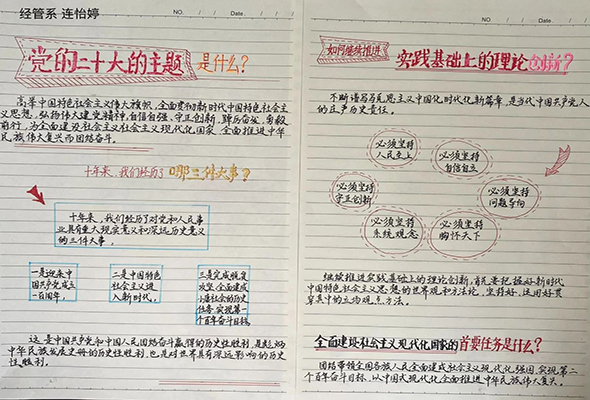 经管系 连怡婷
NO. / / Date
党的二十大的主题是什么?
高举中国特色社会主义伟大旗帜,全面贯彻新时代中国特色社会主
义思想,弘扬伟大建党精神,自信自强、守正创新,踔厉奋发、勇毅
前行,为全面建设社会主义社会主义现代化国家、全面推进中华
民族伟大复兴而团结奋斗。
十年来、我们经历了哪三件大事?
十年来、我们经历了对党和人民事
业具有重大现实意义和深远历史意义
的三件大事,
一是迎来中
国共产党成立
一百周年,
二是中国特色
社会主义进
入新时代,
三是完成脱贫
攻坚、全面建成
小康社会的历史
任务,实现第一
个百年奋斗目标.
这是中国共产党和中国人民团结奋斗赢得的历史性胜利,是彪炳
中华民族发展史册的历史性胜利,也是对世界具有深远影响的历史
性胜利。
NO. / / Date
如何继续推进
实践基础上的理论创新?
不断谱写马克思主义中国化时代化新篇章,是当代中国共产党人
的庄严历史责任。
必须坚持
人民至上
必须坚持
自信自立
必须坚持
守正创新
必须坚持
问题导向
必须坚持
系统观念
必须坚持
胸怀天下
继续推进实践基础上的理论创新,首先要把握好新时代
中国特色社会主义思想的世界观和方法论,坚持好、运用好贯
穿其中的立场观点方法。
全面建设社会主义现代化国家的首要任务是什么?
团结带领全国各族人民全面建成社会主义现代化强国、实现第二
个百年奋斗目标,以中国式现代化全面推进中华民族伟大复兴。